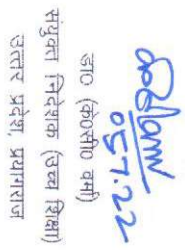 05.7.22
डा० (के०सी० वर्मा)
संयुक्त निदेशक (उच्च शिक्षा)
उत्तर प्रदेश, प्रयागराज